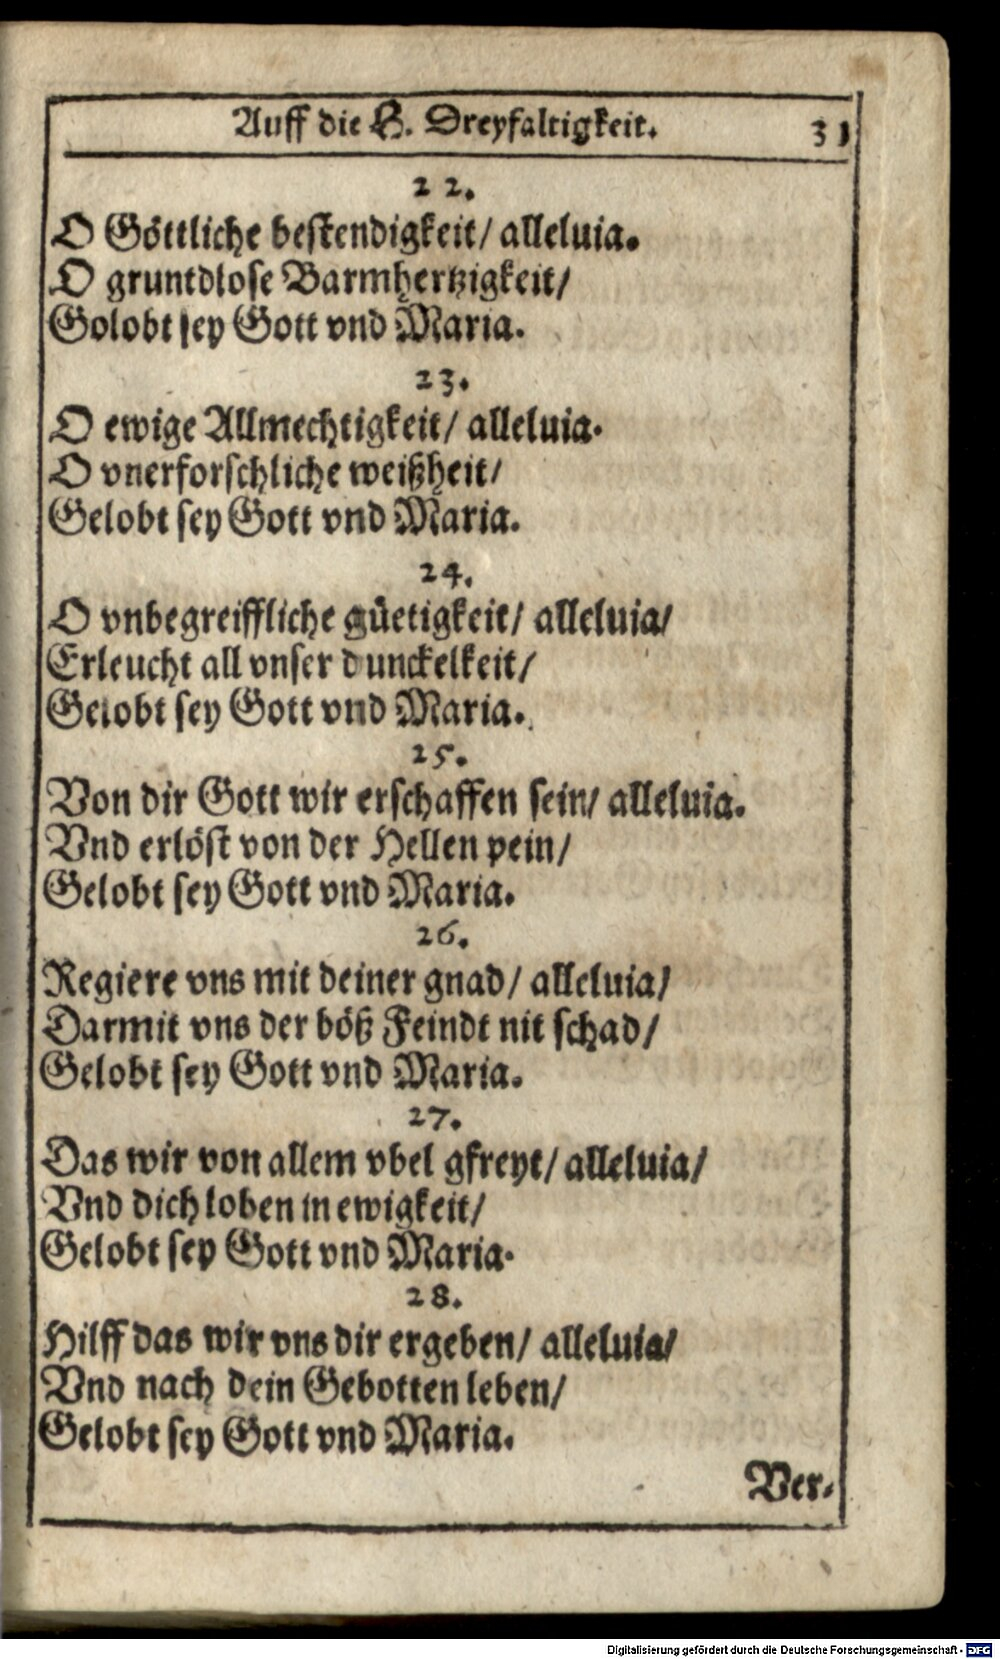 Auff die H. Dreyfaltigkeit. 31
22.
O Göttliche bestendigkeit/ alleluia.
O gruntdlose Barmhertzigkeit/
Golobt sey Gott vnd Maria.
23.
O ewige Allmechtigkeit/ alleluia.
O vnerforschliche weißheit/
Gelobt sey Gott vnd Maria.
24.
O vnbegreiffliche güetigkeit/ alleluia/
Erleucht all vnser dunckelkeit/
Gelobt sey Gott vnd Maria.
25.
Von dir Gott wir erschaffen sein/ alleluia.
Vnd erlöst von der Hellen pein/
Gelobt sey Gott vnd Maria.
26.
Regiere vns mit deiner gnad/ alleluia/
Darmit vns der böß Feindt nit schad/
Gelobt sey Gott vnd Maria.
27.
Das wir von allem vbel gfreyt/ alleluia/
Vnd dich loben in ewigkeit/
Gelobt sey Gott vnd Maria.
28.
Hilff das wir vns dir ergeben/ alleluia/
Vnd nach dein Gebotten leben/
Gelobt sey Gott vnd Maria.
Ver-
Digitalisierung gefördert durch die Deutsche Forschungsgemeinschaft - DFG